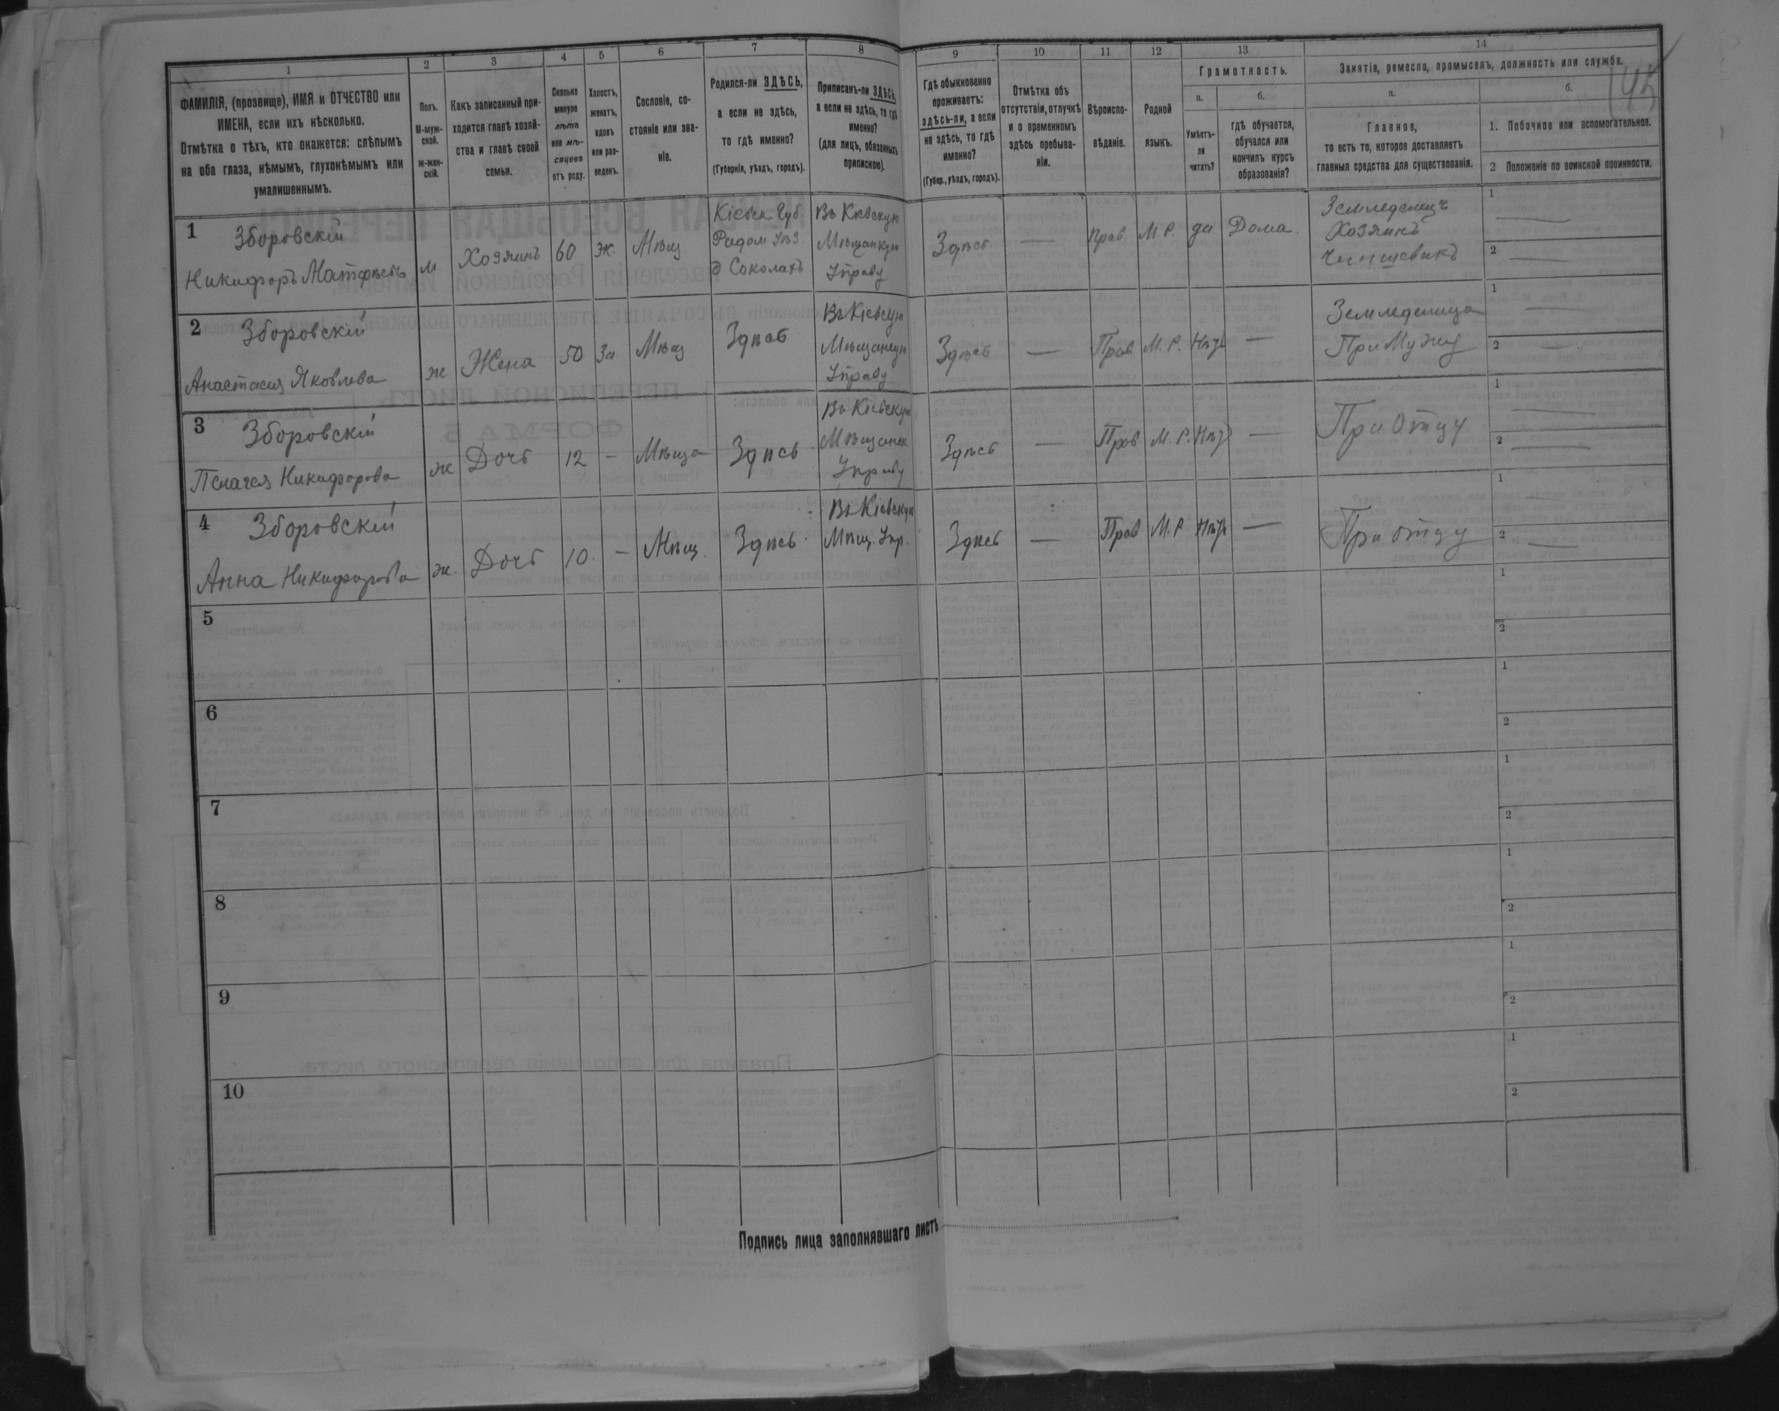 1 2 3 4 5 6 7 8 9 10 11 12 13 14
ФАМИЛІЯ, (прозвище), ИМЯ и ОТЧЕСТВО или
ИМЕНА, если ихъ нѣсколько.
Отмѣтка о тѣхъ, кто окажется: слѣпымъ
на оба глаза, нѣмымъ, глухонѣмымъ или
умалишеннымъ.
Полъ.
М-муж-
ской.
ж-жен-
скій.
Какъ записанный при-
ходится главѣ хозяй-
ства и главѣ своей
семьи.
Сколько
минуло
лѣтъ
или мѣ-
сяцевъ
отъ роду.
Холостъ,
женатъ,
вдовъ
или раз-
веденъ.
Сословіе, со-
стояніе или зва-
ніе.
Родился-ли ЗДѢСЬ,
а если не здѣсь,
то гдѣ именно?
(Губернія, уѣздъ, городъ).
Приписанъ-ли ЗДѢСЬ,
а если не здѣсь, то гдѣ
именно?
(для лицъ, обязанныхъ
припискою).
Гдѣ обыкновенно
проживаетъ:
здѣсь-ли, а если
не здѣсь, то гдѣ
именно?
(Губер., уѣздъ, городъ).
Отмѣтка объ
отсутствіи, отлучкѣ
и о временномъ
здѣсь пребыва-
ніи.
Вѣроиспо-
вѣданіе.
Родной
языкъ.
Грамотность.
а.
Умѣетъ-
ли
читать?
б.
гдѣ обучается,
обучался или
кончилъ курсъ
образованія?
Занятіе, ремесло, промыселъ, должность или служба.
а.
Главное,
то есть то, которое доставляетъ
главныя средства для существованія.
б.
1. Побочное или вспомогательное.
2 Положеніе по воинской повинности.
145
1 Зборовскій
Никифоръ Матфѣевъ
м Хозяинъ 60 ж. Мѣщ
Кіевск Губ
Радом Уѣз
д Соколахъ
Въ Кіевскую
Мѣщанкую
Управу
Здѣсь — Прав. М.Р. да Дома.
Земледелецъ
Хозяинъ
Чиншевикъ
1 —
2 —
2 Зборовскій
Анастасія Яковлева
ж Жена 50 За Мѣщ Здѣсь
Въ Кіевскую
Мѣщанскую
Управу
Здѣсь — Прав М.Р. Нѣтъ —
Земледелица
При Мужу
1 —
2 —
3 Зборовскій
Пелагея Никифорова
ж Дочь 12 — Мѣща Здѣсь
Въ Кіевскую
Мѣщанск
Управу
Здѣсь — Прав М.Р. Нѣтъ —
При Отцу
1 —
2 —
4 Зборовскій
Анна Никифорова
ж. Дочь 10. — Мѣщ. Здѣсь.
Въ Кіевскую
Мѣщ. Упр.
Здѣсь — Прав М.Р Нѣтъ —
При отцу
1 —
2 —
5
1
2
6
1
2
7
1
2
8
1
2
9
1
2
10
1
2
Подпись лица заполнявшаго листъ